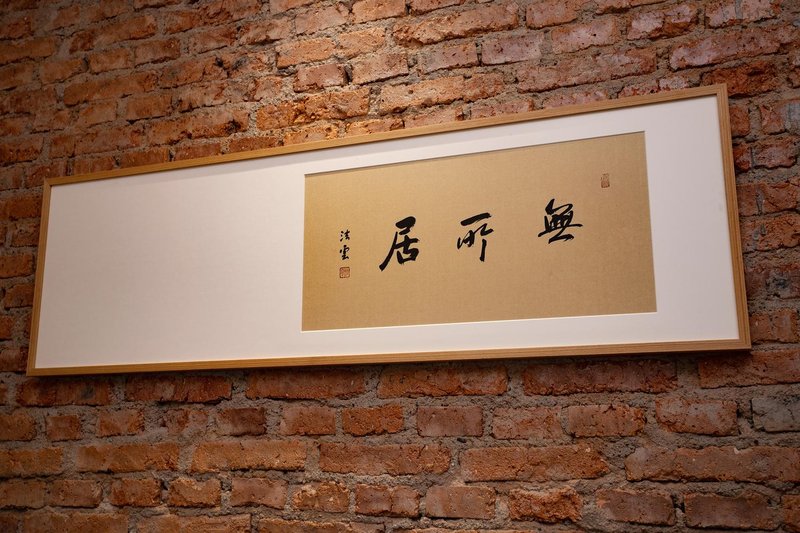 無所居
法雲